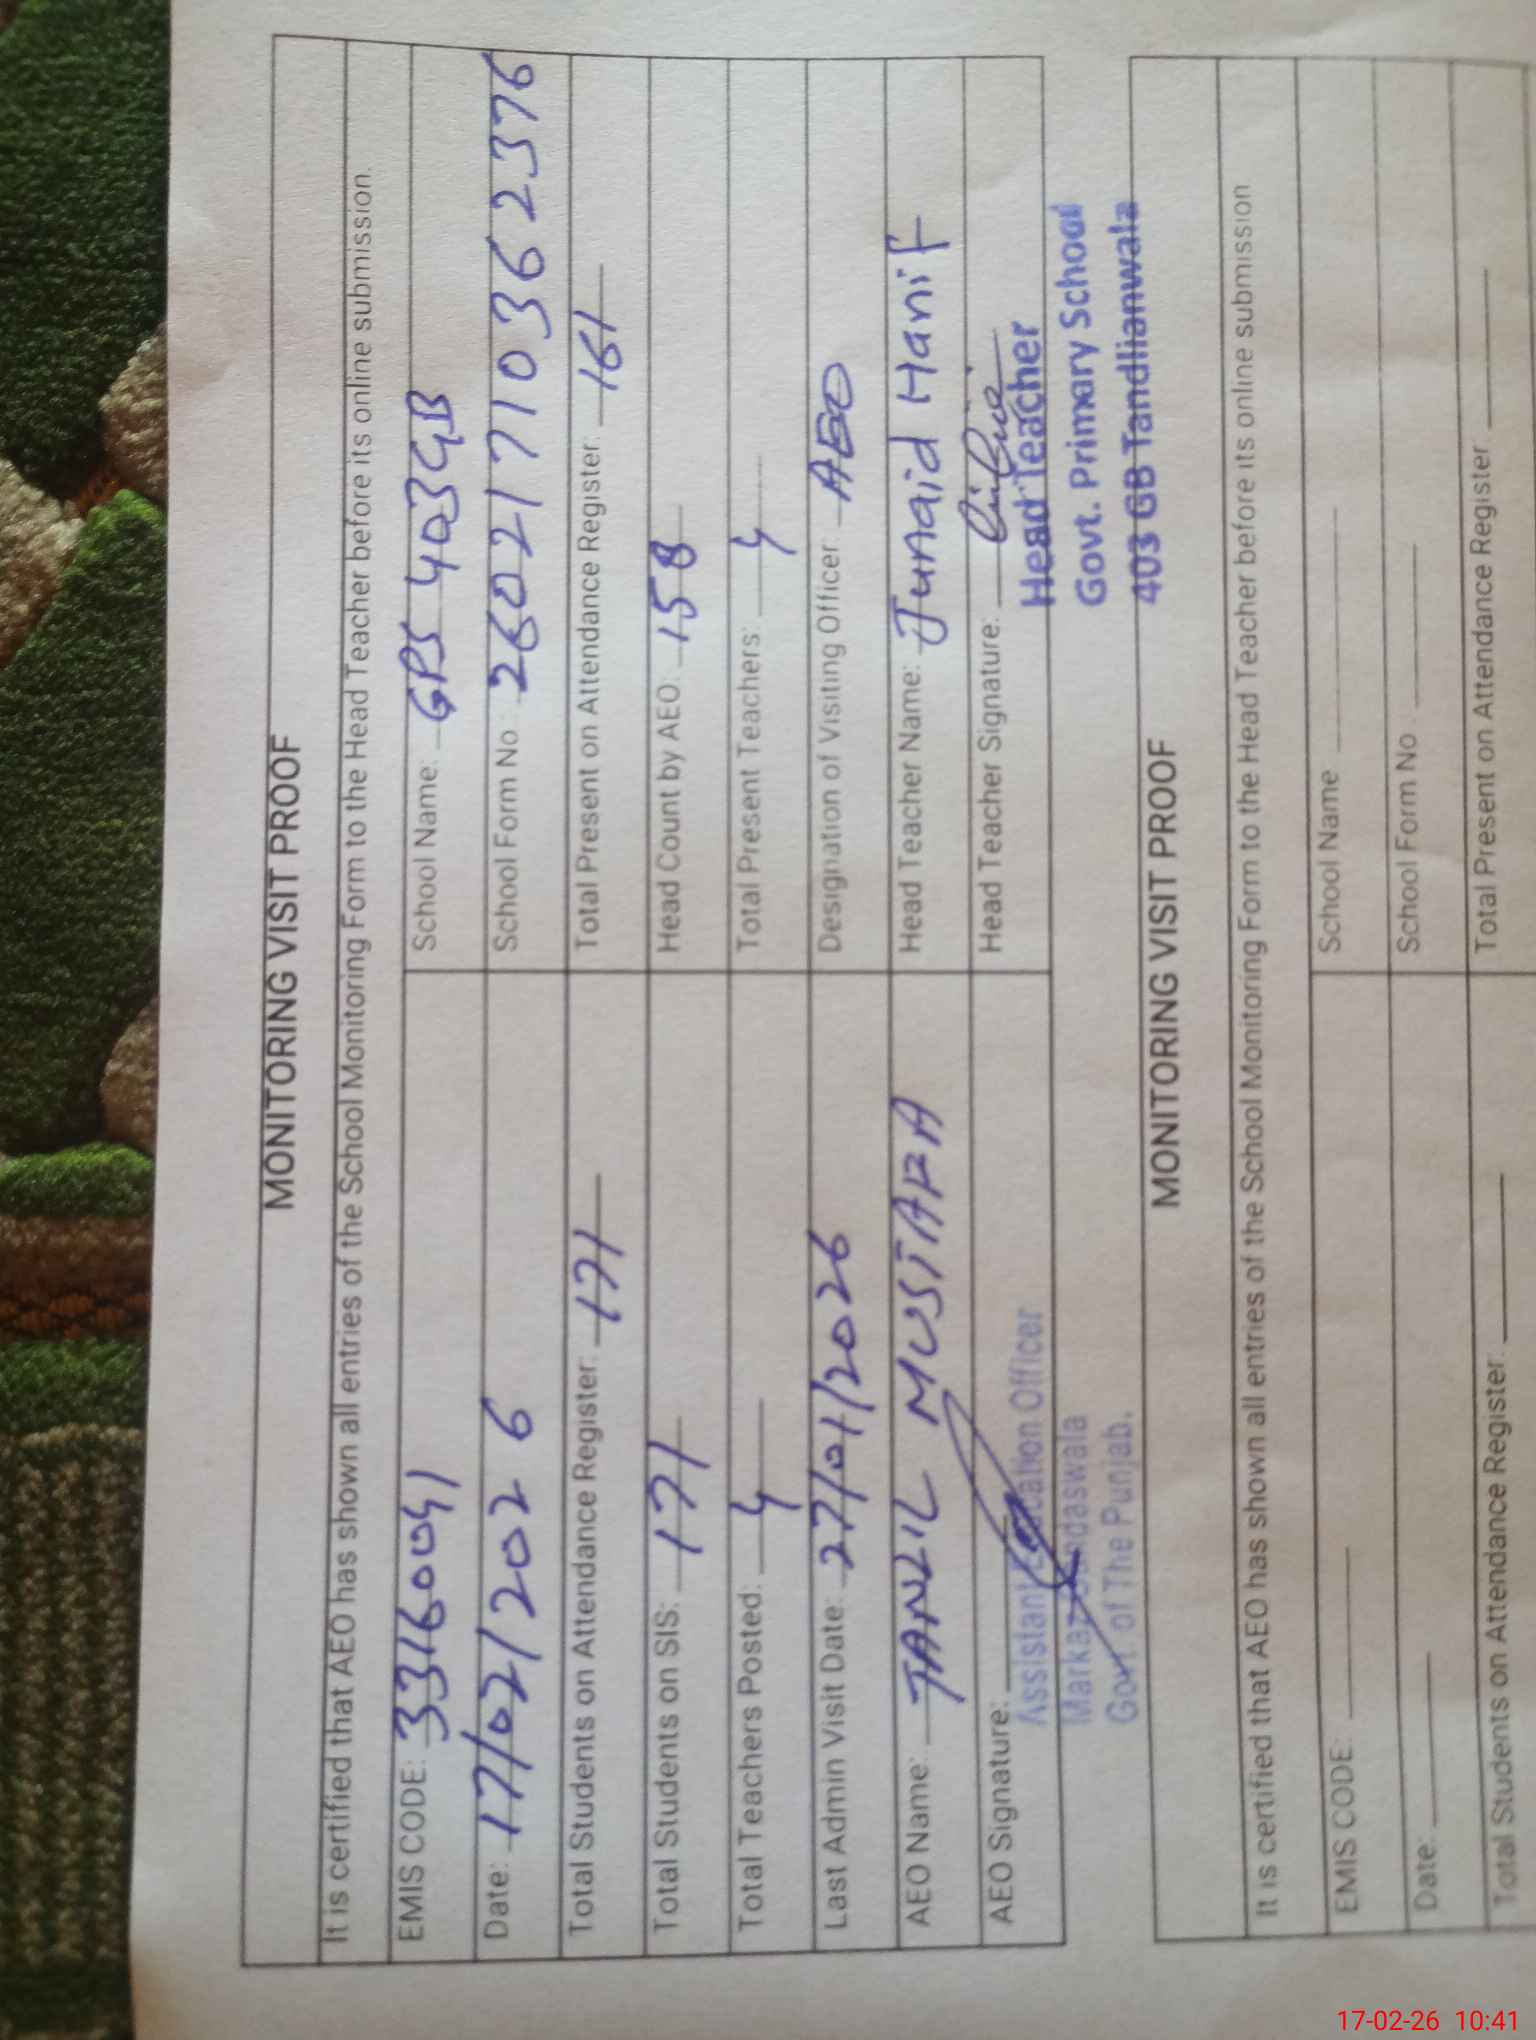 MONITORING VISIT PROOF
It is certified that AEO has shown all entries of the School Monitoring Form to the Head Teacher before its online submission.
EMIS CODE: 33160041 School Name: GPS 403GB
Date: 17/02/2026 School Form No: 2602171036 2376
Total Students on Attendance Register: 171 Total Present on Attendance Register: 161
Total Students on SIS: 171 Head Count by AEO: 158
Total Teachers Posted: 4 Total Present Teachers: 4
Last Admin Visit Date: 27/01/2026 Designation of Visiting Officer: AEO
AEO Name: TANZIL MUSTAFA Head Teacher Name: Junaid Hanif
AEO Signature: Head Teacher Signature:
Assistant Education Officer Head Teacher
Markaz Govt. Primary School
Govt. of The Punjab. 403 GB Tandlianwala
MONITORING VISIT PROOF
It is certified that AEO has shown all entries of the School Monitoring Form to the Head Teacher before its online submission
EMIS CODE: School Name
Date: School Form No
Total Students on Attendance Register: Total Present on Attendance Register
17-02-26 10:41